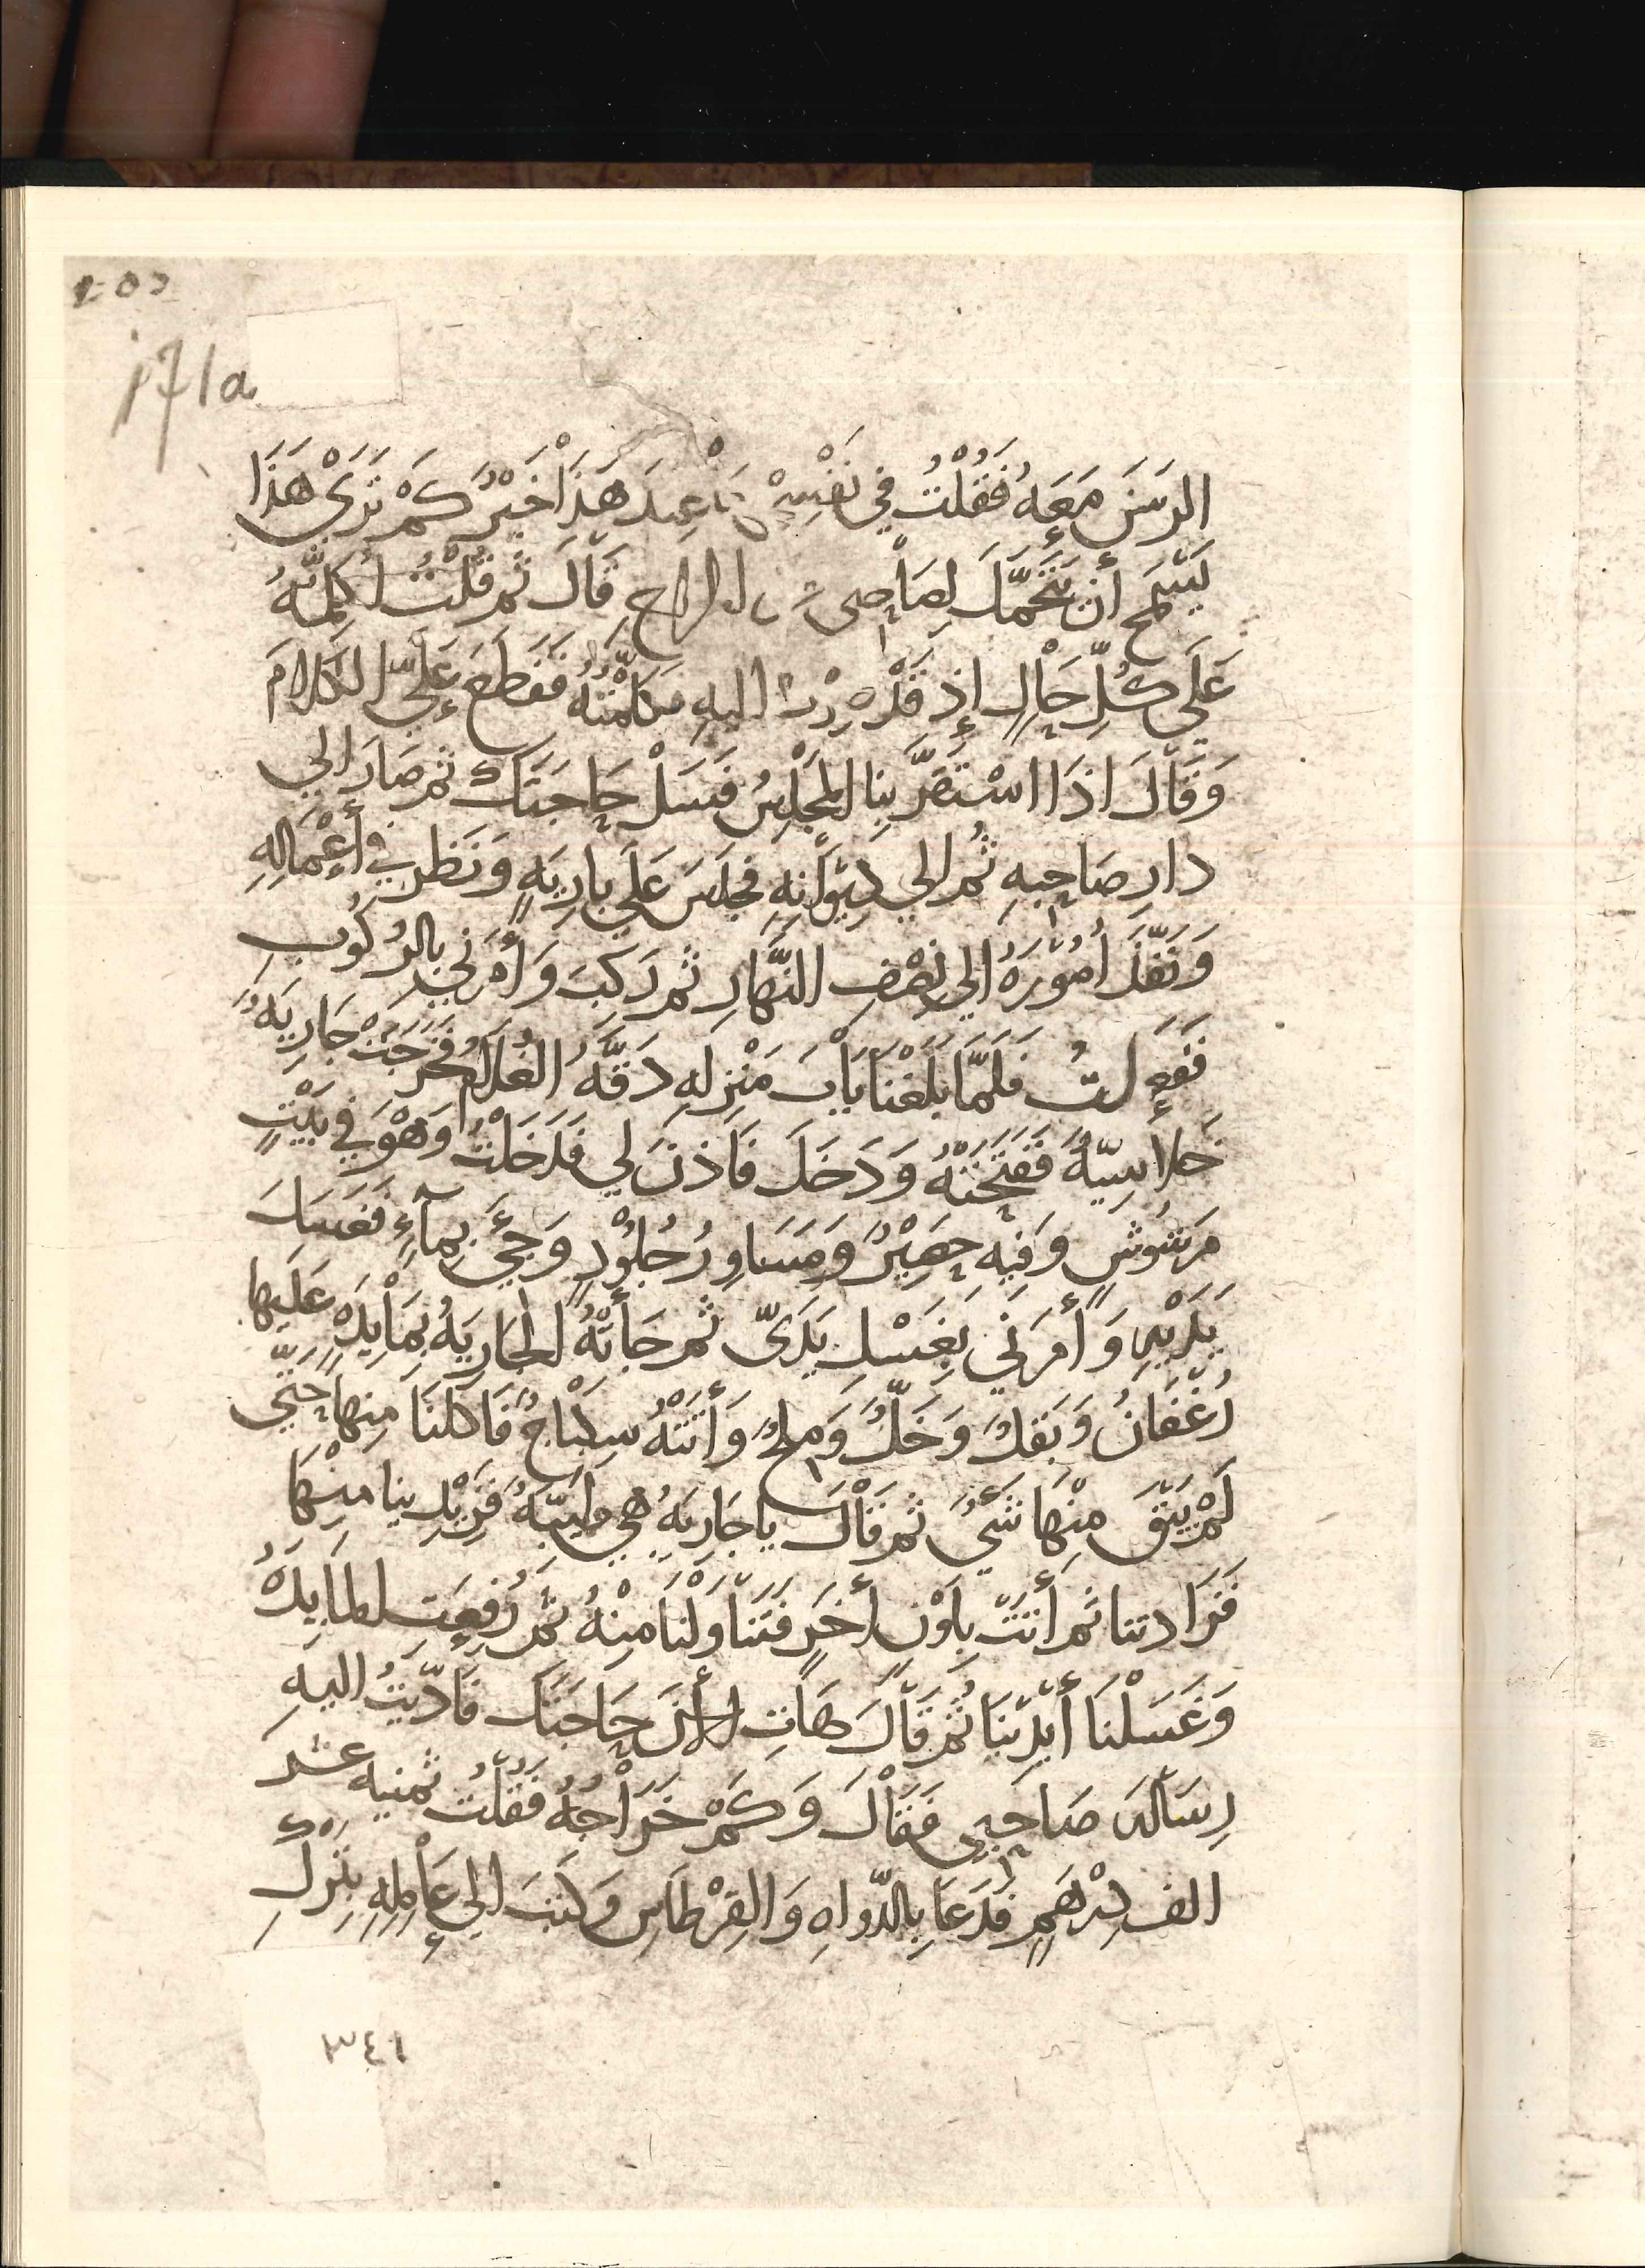 171a
الرسَنَ مَعَهُ فَقُلْتُ في نَفْسِيْ عِندَ هَذَا خَيْرٌ كَمْ تَرَيْ هَذَا
يَسْمَح أن يَتَحَمَّلَ لِصَاحِبي قَالَ ثم قُلْتُ أُكَلِّمُهُ
عَلَي كُلِّ حَالٍ إذ قَد صِرْتُ اليهِ فكَلَّمْتُهُ فَقَطَعَ عَلَيَّ الكَلامَ
وَقَالَ اذَا اسْتَقَرَّ بِنا المَجْلِسُ فَسَلْ حَاجَتَكَ ثم صَارَ الي
دارِ صَاحِبِهِ ثُم الي دِيْوَانِهِ فجَلَسَ عَلَي بارِيَهٍ وَنَظَر في أعْمَالِهِ
وَنَفَّذَ أُمُوْرَهُ الي نِصْفِ النَّهَارِ ثم رَكِبَ وَأَمَرَني بالرُكُوبِ
فَفَعَلتُ فَلَمَّا بَلَغْنَا بَابَ مَنْزِلِهِ دَقَّهُ الغُلَامُ فَخَرَجَتْ جَارِيَهٌ
خَلاسِيّهٌ فَفَتَحَتْهُ وَدَخَلَ فَاَذنَ لي فَدَخَلْتُ وَهْوَ في بَيْتٍ
مَرشُوشٍ وَفيهِ حَصِيْرٌ وَمَسَاورُ جُلُوْدٍ وَجِيءَ بِمآءٍ فَغَسَلَ
يَدَيْهِ وَأمَرَني بِغَسْلِ يَدَيّ ثم جَأتْهُ الجَارِيَهُ بِمَأيِدَهٍ عَلَيها
رُغْفَانٌ وَبَقلٌ وَخَلٌّ وَمِلحٌ وَأتَتْهُ بِسِكْبَاجٍ فَاَكَلنَا مِنها حَتّي
لَمْ يَبْقَ مِنْهَا شَيءٌ ثم قَالَ يا جَارِيَهُ هِي طَيِّبَهٌ فَزِيْدِينا مِنْهَا
فَزَادتنا ثم أتَتْ بِلَوْنٍ أخَرٍ فَتَنَاوَلْنَا مِنْهُ ثُمَّ رُفِعَتِ المَايِدَهُ
وَغَسَلْنَا أيْدِيَنَا ثُمَّ قَالَ هَاتِ الأنَ حَاجَتَكَ فَاَدّيتُ اليهِ
رِسَالَهَ صَاحِبِي فَقَالَ وَكَمْ خَرَاجُهُ فَقُلْتُ ثمنيه عشَر
الف دِرْهَمٍ فَدَعَا بِالدّواهِ وَالقِرْطَاسِ وَكَتَبَ الي عَامِلِهِ بِتَرْكِ
٣٤١